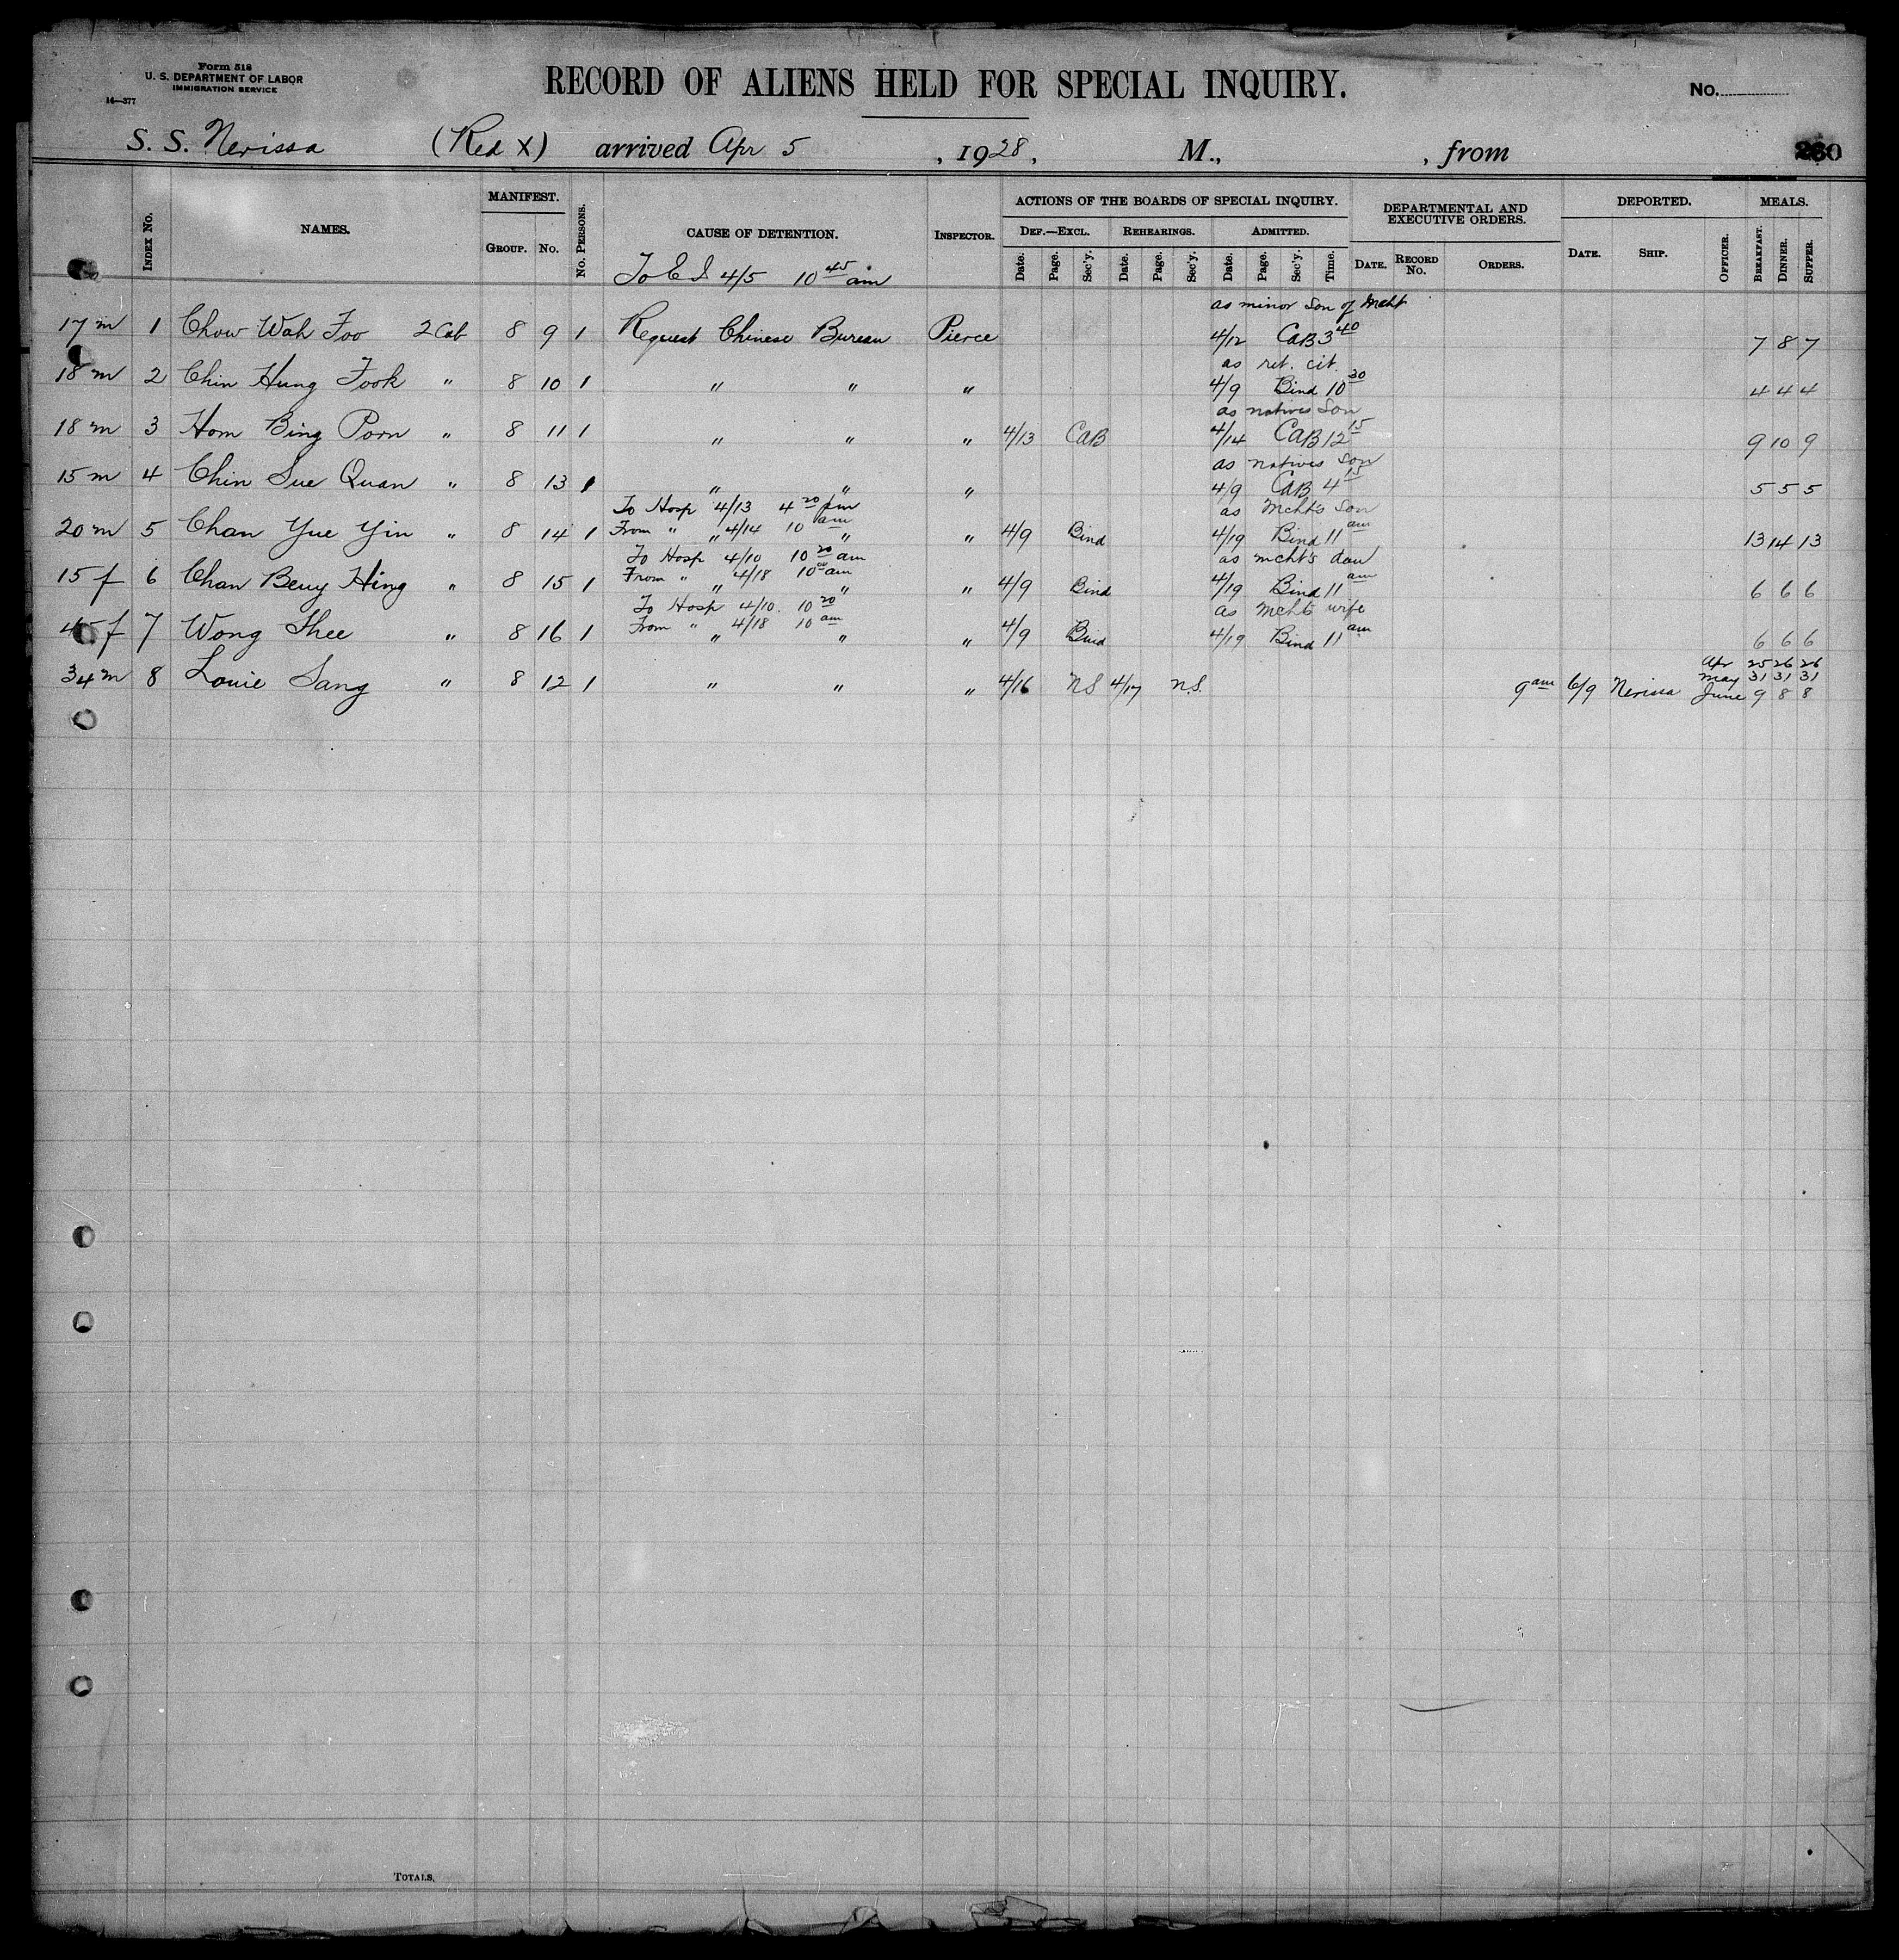 Form 518
U. S. DEPARTMENT OF LABOR
IMMIGRATION SERVICE
14—377
RECORD OF ALIENS HELD FOR SPECIAL INQUIRY.
No.
S. S. Nerissa (Red X) arrived Apr 5, 1928, M., , from 260
MANIFEST. ACTIONS OF THE BOARDS OF SPECIAL INQUIRY. DEPARTMENTAL AND EXECUTIVE ORDERS. DEPORTED. MEALS.
INDEX NO. NAMES. GROUP. NO. NO. PERSONS. CAUSE OF DETENTION. INSPECTOR. DEF.—EXCL. REHEARINGS. ADMITTED.
Date. Page. Sec'y. Date. Page. Sec'y. Date. Page. Sec'y. Time. DATE. RECORD NO. ORDERS. DATE. SHIP. OFFICER. BREAKFAST. DINNER. SUPPER.
To E I 4/5 10 45 am
as minor son of Mcht
17 m 1 Chow Wah Foo 2 Cab 8 9 1 Request Chinese Bureau Pierce 4/12 CAB 3 40 7 8 7
as ret. cit.
18 m 2 Chin Hung Fook " 8 10 1 " " " 4/9 Bind 10 30 4 4 4
as natives son
18 m 3 Hom Bing Porn " 8 11 1 " " " 4/13 CAB 4/14 CAB 12 15 9 10 9
as natives son
15 m 4 Chin Sue Quan " 8 13 1 " " " 4/9 CAB 4 15 5 5 5
To Hosp 4/13 4 20 pm as Mcht's son
From " 4/14 10 am
20 m 5 Chan Yue Yin " 8 14 1 " " " 4/9 Bind 4/19 Bind 11 am 13 14 13
To Hosp 4/10 10 20 am as mcht's dau
From " 4/18 10 00 am
15 f 6 Chan Beuy Hing " 8 15 1 " " " 4/9 Bind 4/19 Bind 11 am 6 6 6
To Hosp 4/10. 10 20 as mcht's wife
From " 4/18 10 am
f 7 Wong Shee " 8 16 1 " " " 4/9 Bind 4/19 Bind 11 am 6 6 6
Apr 25 26 26
May 31 31 31
34 m 8 Louie Sang " 8 12 1 " " " 4/16 NS 4/17 N.S. 9 am 6/9 Nerissa June 9 8 8
TOTALS,